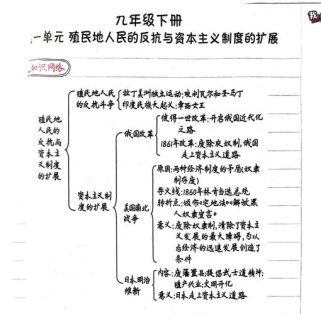 九年级下册
一单元 殖民地人民的反抗与资本主义制度的扩展
知识网络
殖民地人民的反抗与资本主义制度的扩展
殖民地人民的反抗斗争
拉丁美洲独立运动:玻利瓦尔和圣马丁
印度民族大起义:章西女王
资本主义制度的扩展
俄国改革
彼得一世改革:开启俄国近代化
之路
1861年改革:废除农奴制,俄国
走上资本主义道路
美国南北战争
原因:两种经济制度的矛盾(奴隶
制存废)
导火线:1860年林肯当选总统
转折点:颁布《宅地法》《解放黑
人奴隶宣言》
意义:废除奴隶制,清除了资本主
义发展的最大障碍,为以
后经济的迅速发展创造了
条件
日本明治维新
内容:废藩置县;提倡武士道精神;
殖产兴业;文明开化
意义:日本走上资本主义道路